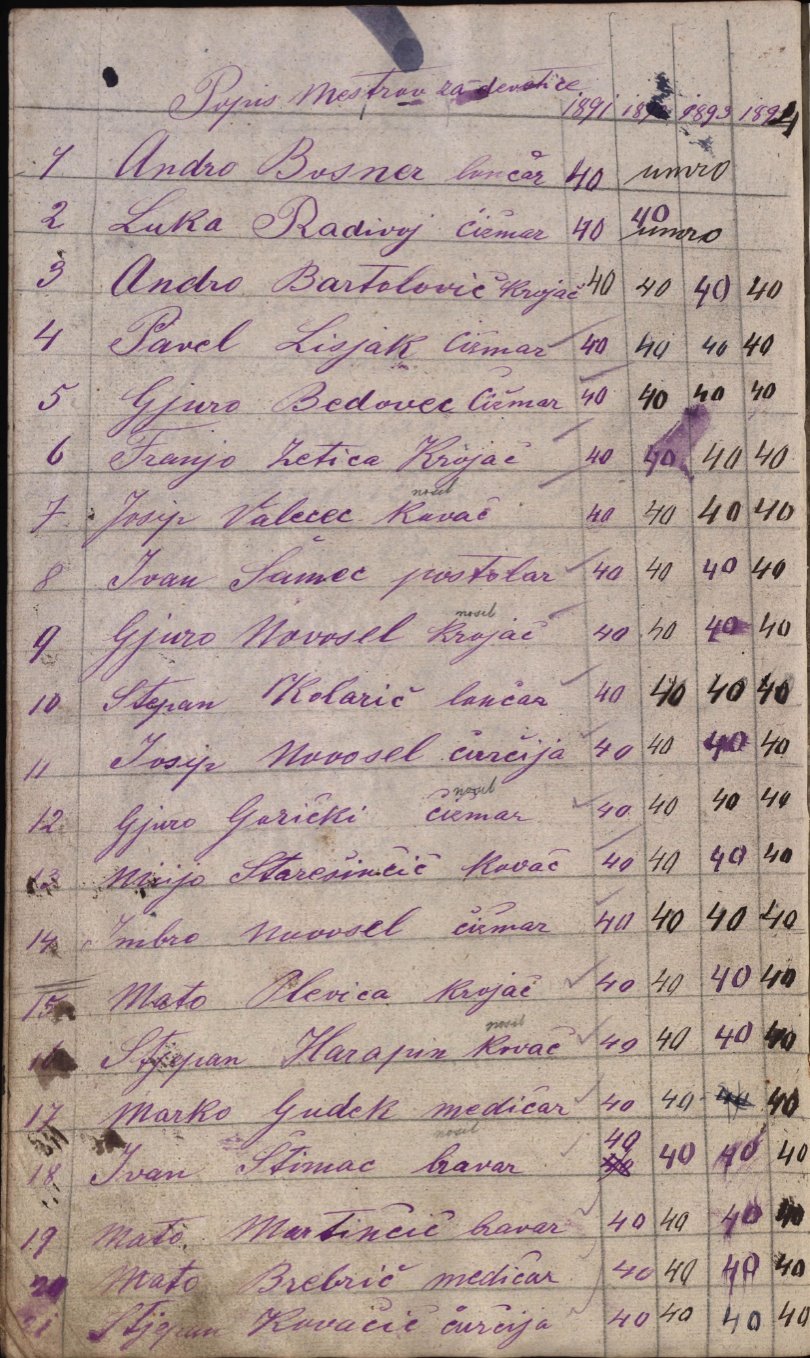 Popis Mestrov za devetice
1891 189 1893 1894
1 Andro Bosner lončar 40 umro
2 Luka Radivoj čižmar 40 40 umro
3 Andro Bartolović Krojač 40 40 40 40
4 Pavel Lisjak čižmar 40 40 40 40
5 Gjuro Bedovec čižmar 40 40 40 40
6 Franjo Zetica Krojač 40 40 40 40
nosil
7 Josip Valecec Kovač 40 40 40 40
8 Ivan Šamec postolar 40 40 40 40
nosil
9 Gjuro Novosel Krojač 40 40 40 40
10 Stepan Kolarić lončar 40 40 40 40
11 Josip Novosel ćurčija 40 40 40 40
nosil
12 Gjuro Gorički čižmar 40 40 40 40
13 Mijo Starešinčić Kovač 40 40 40 40
14 Imbro Novosel čižmar 40 40 40 40
15 Mato Plevica Krojač 40 40 40 40
nosil
16 Stjepan Harapin Kovač 40 40 40 40
17 Marko Gudek medičar 40 40 40 40
nosil
18 Ivan Štimac bravar 40 40 40 40
19 Mato Martinčić bravar 40 40 40 40
20 Mato Brebrić medičar 40 40 40 40
Stjepan Kovačić ćurčija 40 40 40 40